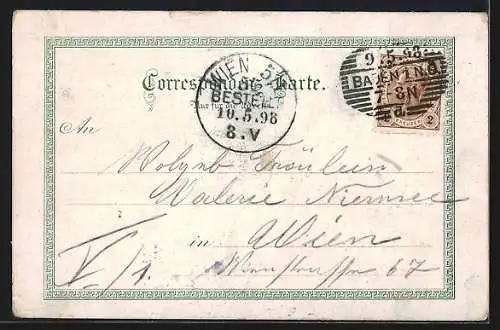 Correspondenz-Karte.
Nur für die Adresse
WIEN 5/1
BESTELLT
10.5.98
8.V
9.5.98
BADEN 1 N.Ö.
8N
2
An
Wolgeb Fräulein
Valerie
in Wien
V/1. 67